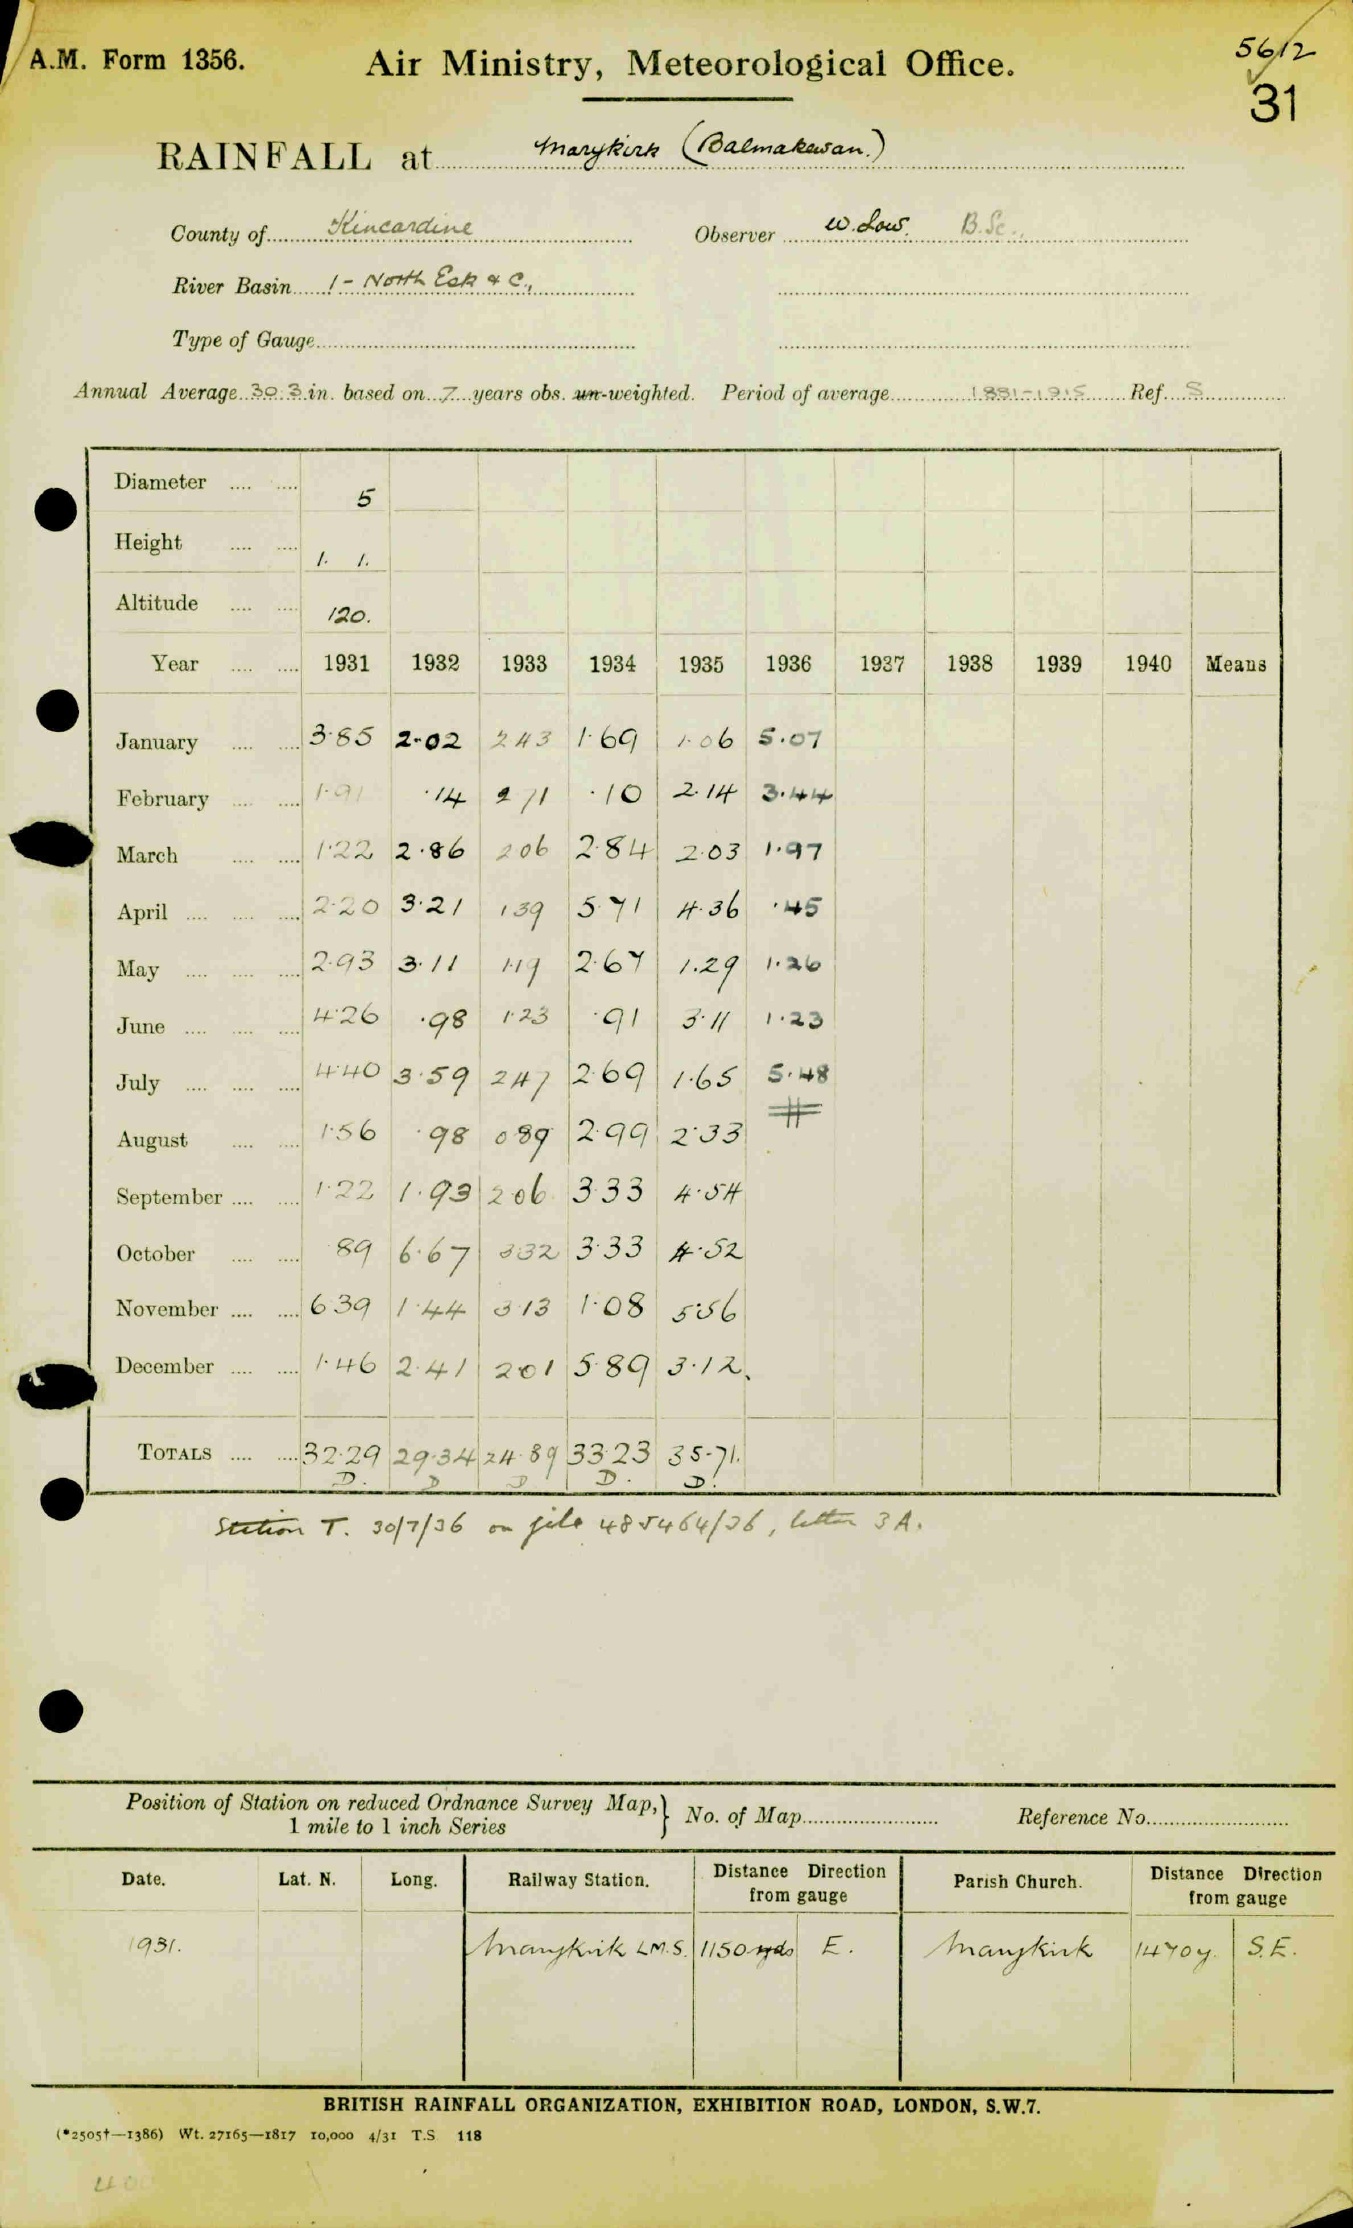 A.M. Form 1356.
Air Ministry, Meteorological Office.
5612
31
RAINFALL at Marykirk (Balmakewan.)
County of Kincardine Observer W. Low. B.Sc.,
River Basin 1 - North Esk & C.,
Type of Gauge
Annual Average 30.3 in. based on 7 years obs. un-weighted. Period of average 1881-1915 Ref. S
Diameter 5
Height 1. 1.
Altitude 120.
Year 1931 1932 1933 1934 1935 1936 1937 1938 1939 1940 Means
January 3.85 2.02 2.43 1.69 1.06 5.07
February 1.91 .14 2.71 .10 2.14 3.44
March 1.22 2.86 2.06 2.84 2.03 1.97
April 2.20 3.21 1.39 5.71 4.36 .45
May 2.93 3.11 1.19 2.67 1.29 1.26
June 4.26 .98 1.23 .91 3.11 1.23
July 4.40 3.59 2.47 2.69 1.65 5.48
August 1.56 .98 0.89 2.99 2.33
September 1.22 1.93 2.06 3.33 4.54
October .89 6.67 3.32 3.33 4.52
November 6.39 1.44 3.13 1.08 5.56
December 1.46 2.41 2.01 5.89 3.12.
TOTALS 32.29 29.34 24.89 33.23 35.71.
D. D D D. D.
Station T. 30/7/36 on file 485464/36, letter 3A.
Position of Station on reduced Ordnance Survey Map, } No. of Map Reference No.
1 mile to 1 inch Series
Date. Lat. N. Long. Railway Station. Distance Direction from gauge Parish Church. Distance Direction from gauge
1931. Marykirk L.M.S. 1150 yds E. Marykirk 1470y. S.E.
BRITISH RAINFALL ORGANIZATION, EXHIBITION ROAD, LONDON, S.W.7.
(*2505†—1386) Wt. 27165—1817 10,000 4/31 T.S. 118